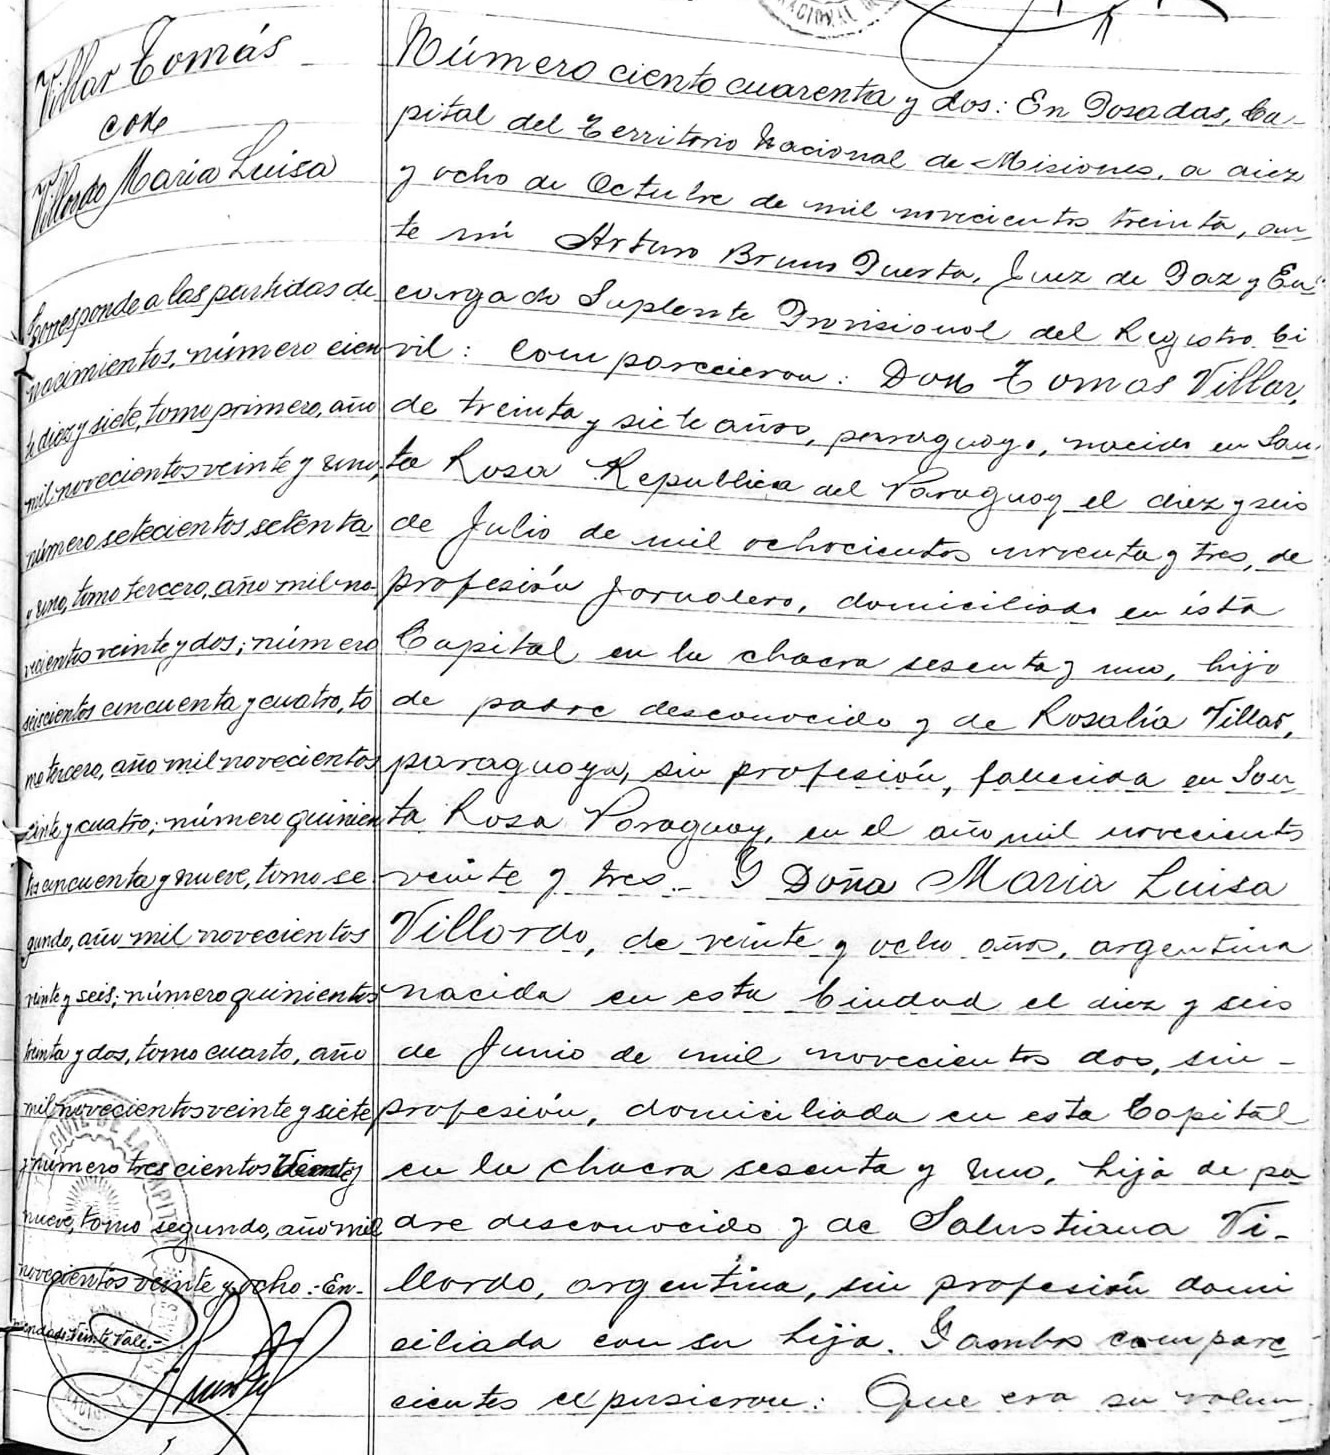 Villar Tomás
con
Villordo Maria Luisa
Corresponde a las partidas de
nacimientos, número cien
to diez y siete, tomo primero, año
mil novecientos veinte y uno;
número setecientos setenta
y uno, tomo tercero, año mil no-
vecientos veinte y dos; número
seiscientos cincuenta y cuatro, to
mo tercero, año mil novecientos
veinte y cuatro; número quinien
tos cincuenta y nueve, tomo se
gundo, año mil novecientos
veinte y seis; número quinientos
treinta y dos, tomo cuarto, año
mil novecientos veinte y siete
y número trescientos veinte y
nueve, tomo segundo, año mil
novecientos veinte y ocho.- En-
mendado: Veinte Vale.-
Número ciento cuarenta y dos: En Posadas, Ca-
pital del Territorio Nacional de Misiones, a diez
y ocho de Octubre de mil novecientos treinta, an-
te mí Arturo Bruno Puerta, Juez de Paz y En-
cargado Suplente Provisional del Registro Ci
vil: Comparecieron: Don Tomas Villar,
de treinta y siete años, paraguayo, nacido en San-
ta Rosa Republica del Paraguay el diez y seis
de Julio de mil ochocientos noventa y tres, de
profesión Jornalero, domiciliado en ésta
Capital en la chacra sesenta y uno, hijo
de padre desconocido y de Rosalía Villar,
paraguaya, sin profesión, fallecida en San
ta Rosa Paraguay, en el año mil novecientos
veinte y tres.- Y Doña Maria Luisa
Villordo, de veinte y ocho años, argentina
nacida en esta Ciudad el diez y seis
de Junio de mil novecientos dos, sin-
profesión, domiciliada en esta Capital
en la chacra sesenta y uno, hija de pa
dre desconocido y de Salustiana Vi-
llordo, argentina, sin profesión domi
ciliada con su hija. Y ambos compare
cientes expusieron: Que era su volun-